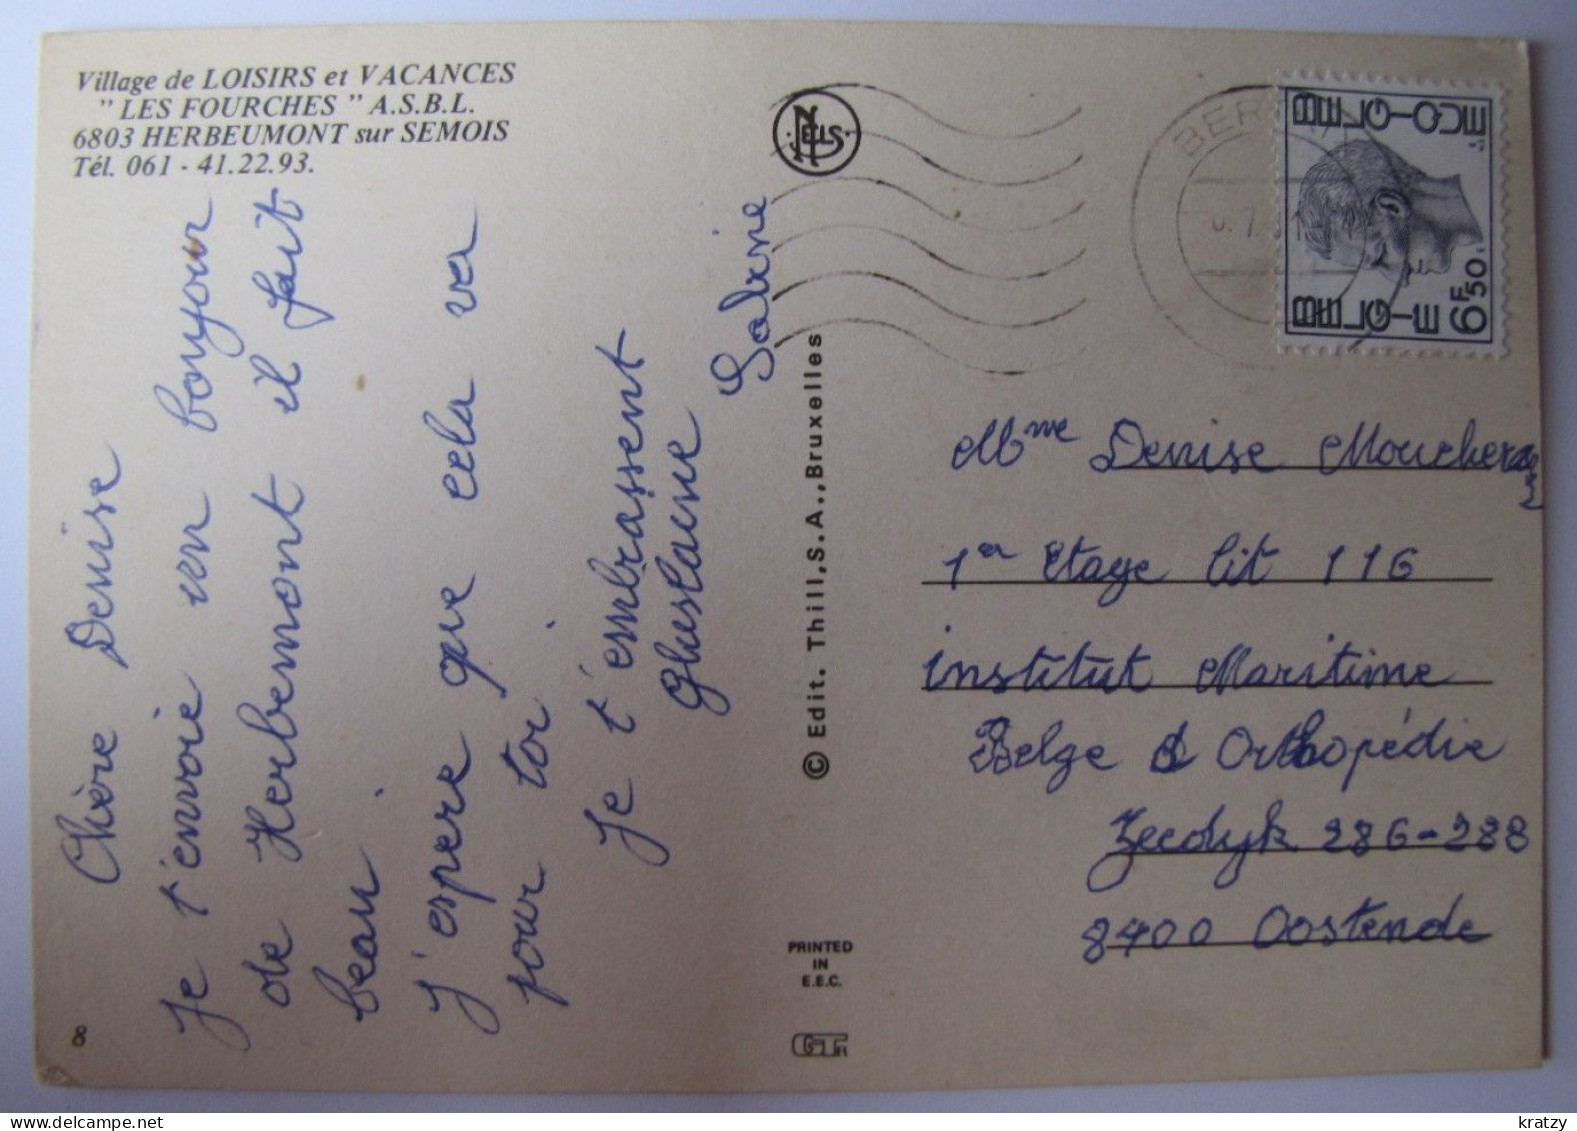 Village de LOISIRS et VACANCES
" LES FOURCHES " A.S.B.L.
6803 HERBEUMONT sur SEMOIS
Tél. 061 - 41.22.93.
Chère Denise
Je t'envoie un bonjour
de Herbemont il fait
beau.
J'espere que cela va
pour toi
Je t'embrassent
Ghislaine
Sabine
8
NELS
© Edit. Thill, S.A., Bruxelles
PRINTED
IN
E.E.C.
BELGIQUE
BELGIE 6F50
BER
Mme Denise
1er Etage lit 116
institut Maritime
Belge d Orthopédie
Zeedyk 286-288
8400 Oostende
www.delcampe.net
kratzy